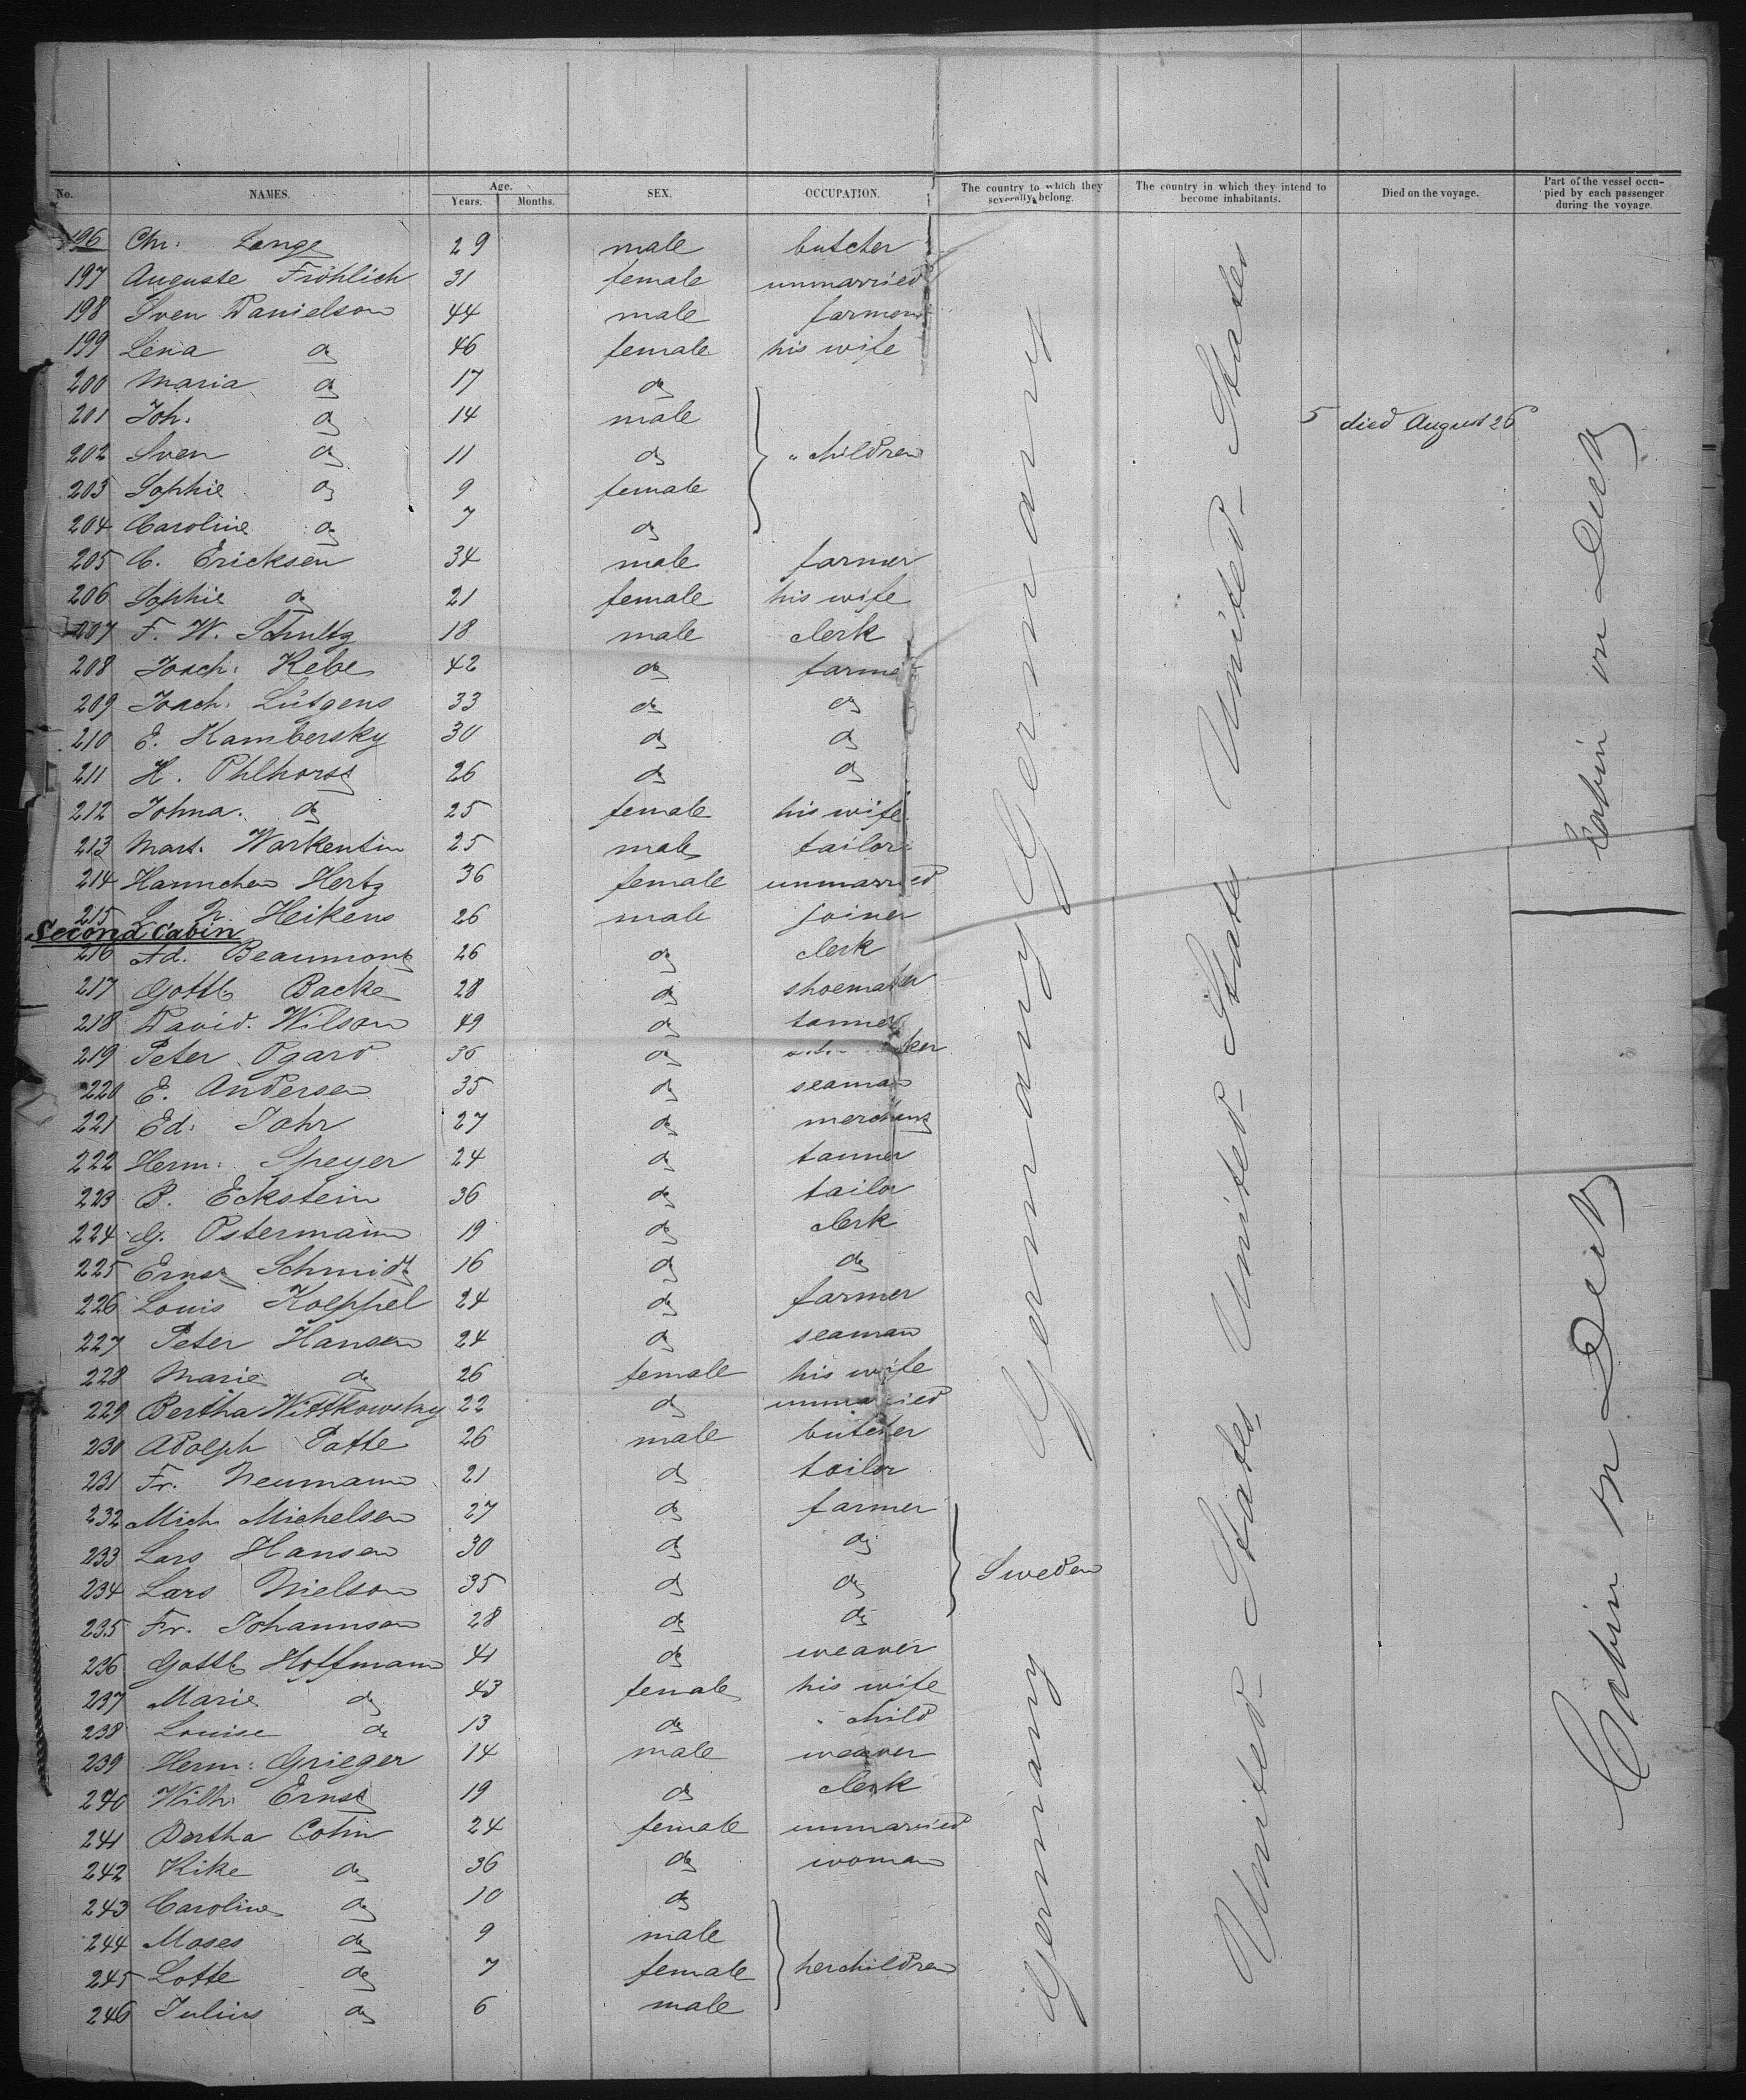 No. NAMES. Age. Years. Months. SEX. OCCUPATION. The country to which they severally belong. The country in which they intend to become inhabitants. Died on the voyage. Part of the vessel occupied by each passenger during the voyage.
196 Chr. Lange 29 male butcher
197 Auguste Fröhlich 31 female unmarried
198 Sven Danielson 44 male farmer
199 Lena do 46 female his wife
200 Maria do 17 do
201 Joh. do 14 male 5 died August 26
202 Sven do 11 do " children
203 Sophie do 9 female
204 Caroline do 7 do
205 C. Ericksen 34 male farmer
206 Sophie do 21 female his wife
207 F. W. Schultz 18 male clerk
208 Joach. Kebe 42 do farmer
209 Joach. Lütgens 33 do do
210 E. Kambersky 30 do do
211 H. Ohlhorst 26 do do
212 Johna. do 25 female his wife
213 Mart. Warkentin 25 male tailor
214 Hannchen Hertz 36 female unmarried
215 L. Heikens 26 male joiner
Second Cabin
216 Ad. Beaumont 26 do clerk
217 Gottlb Backe 28 do shoemaker
218 David Wilson 49 do tanner
219 Peter Ogard 36 do
220 E. Andersen 35 do seaman
221 Ed. Jahr 27 do merchant
222 Herm. Speyer 24 do tanner
223 B. Eckstein 36 do tailor
224 G. Ostermann 19 do clerk
225 Ernst Schmidt 16 do do
226 Louis Koeppel 24 do farmer
227 Peter Hansen 24 do seaman
228 Marie do 26 female his wife
229 Bertha Wittkowsky 22 do unmarried
230 Adolph Patte 26 male butcher
231 Fr. Neumann 21 do tailor
232 Mich. Michelsen 27 do farmer
233 Lars Hansen 30 do do
234 Lars Nielson 35 do do Sweden
235 Fr. Johannson 28 do do
236 Gottlb Hoffmann 41 do weaver
237 Marie do 43 female his wife
238 Louise do 13 do " child
239 Herm. Grieger 14 male weaver
240 Wilh. Ernst 19 do clerk
241 Bertha Cohn 24 female unmarried
242 Rike do 36 do woman
243 Caroline do 10 do
244 Moses do 9 male
245 Lotte do 7 female her children
246 Julius do 6 male
Germany
Germany
Germany
United States
United States
United States
United States
Cabin on Deck
Cabin on Deck